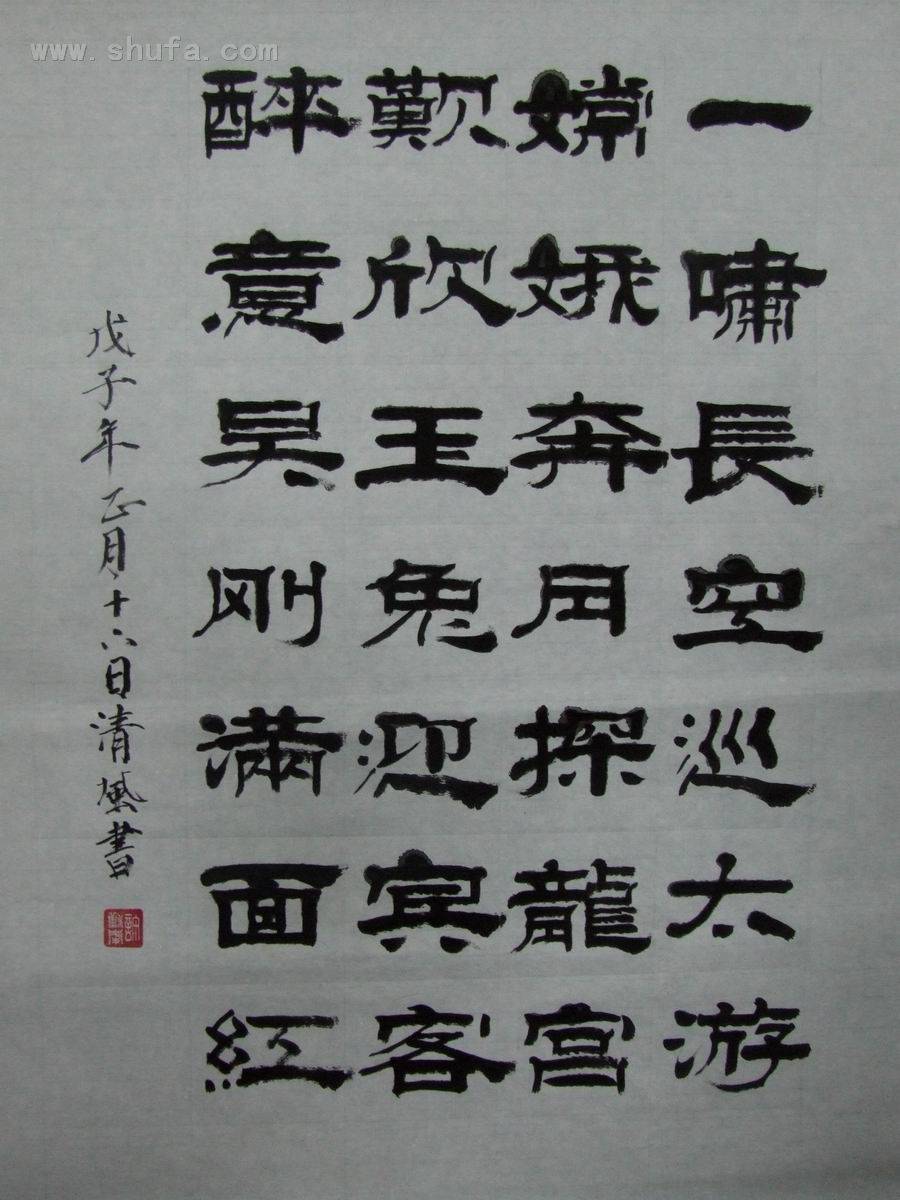 www.shufa.com
一嘯長空巡太游
嫦娥奔月探龍宫
歎欣玉兔迎宾客
醉意吴刚满面紅
戊子年正月十六日清風書